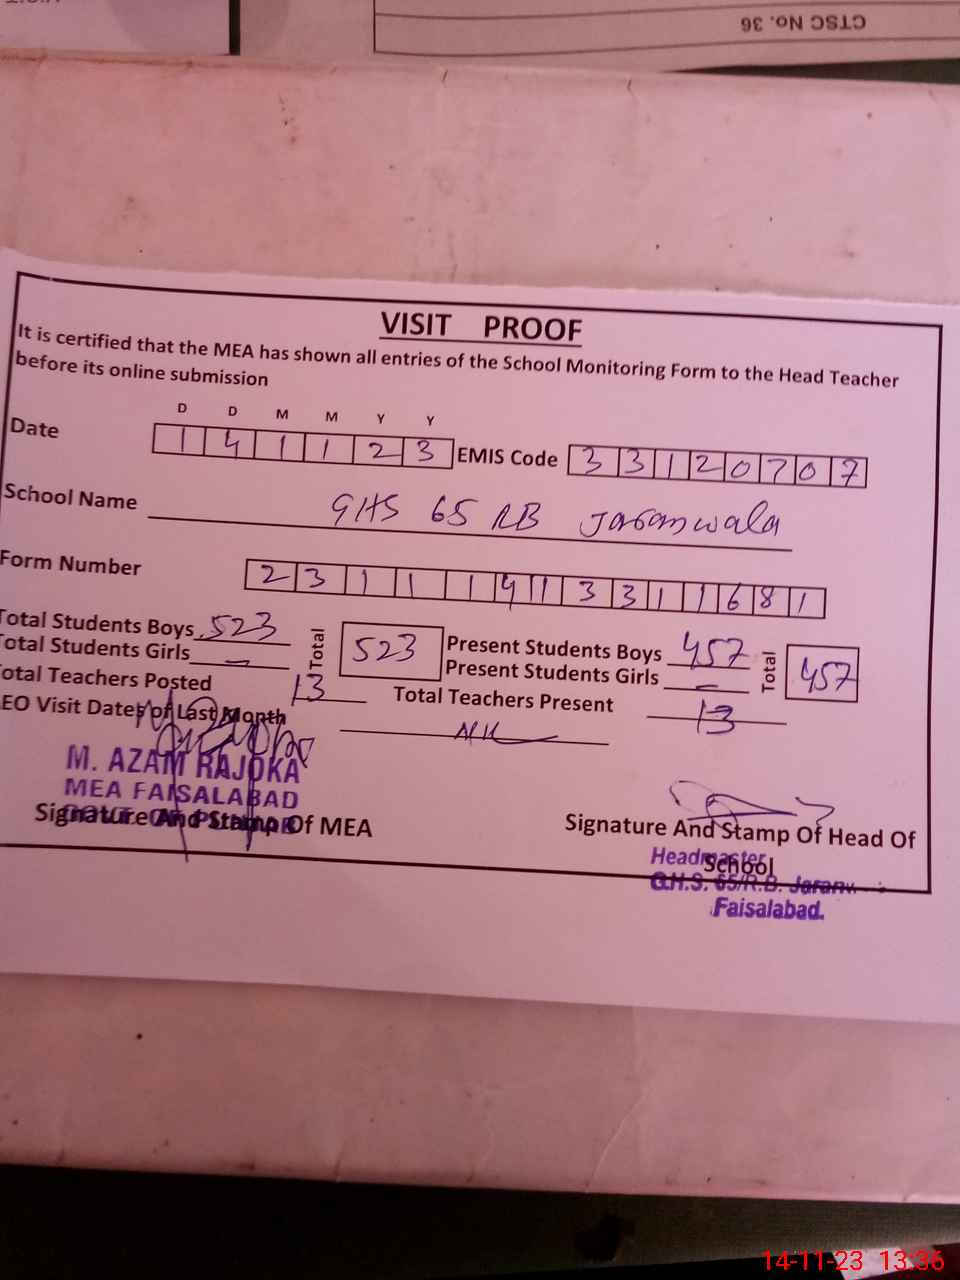 CTSC No. 36
VISIT PROOF
It is certified that the MEA has shown all entries of the School Monitoring Form to the Head Teacher
before its online submission
D D M M Y Y
Date 1 4 1 1 2 3 EMIS Code 3 3 1 2 0 7 0 7
School Name GHS 65 RB Jaranwala
Form Number 2 3 1 1 1 4 1 3 3 1 1 6 8 1
Total Students Boys 523 Total 523 Present Students Boys 457 Total 457
Total Students Girls - Present Students Girls -
Total Teachers Posted 13 Total Teachers Present 13
EO Visit Date of Last Month
M. AZAM RAJOKA
MEA FAISALABAD
Signature And Stamp Of MEA
Signature And Stamp Of Head Of
School
Headmaster
G.H.S. 65/R.B.
Faisalabad.
14-11-23 13:36